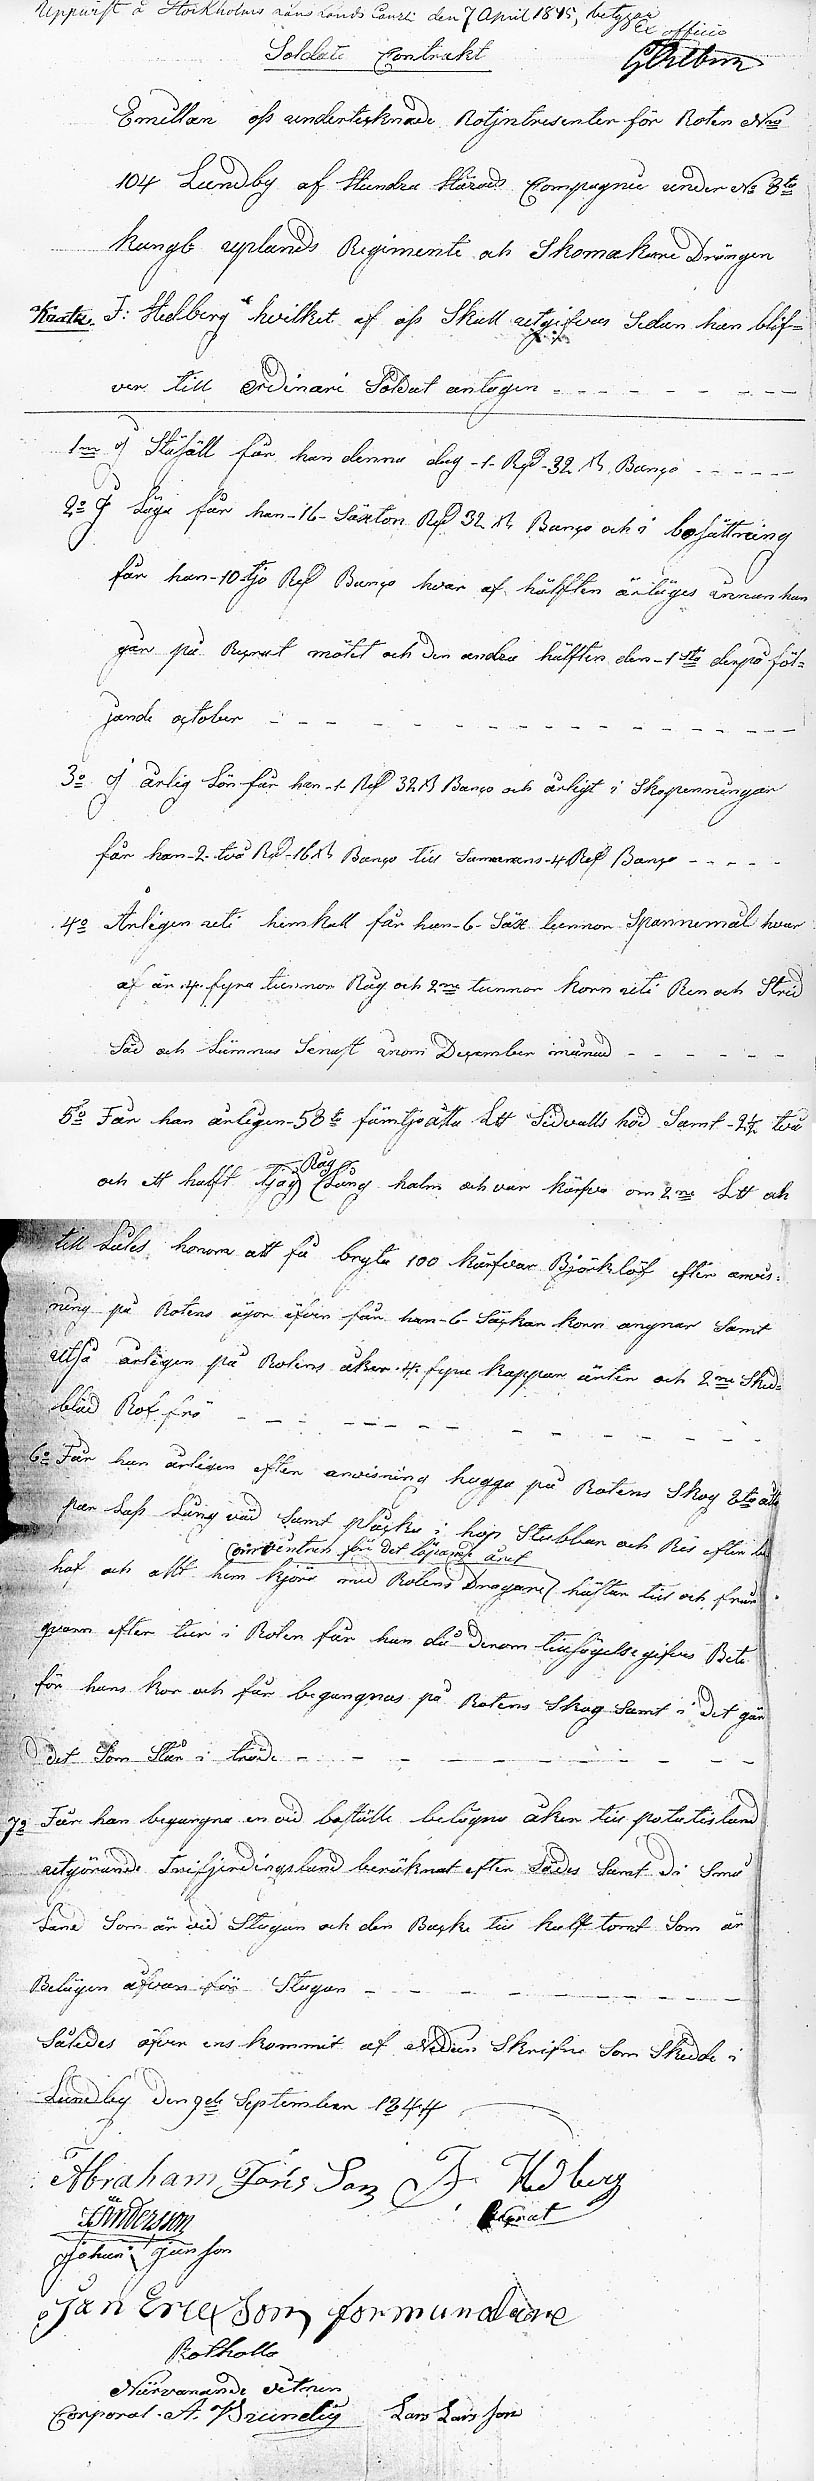 Uppvist å Stockholms Läns Lands Canzli den 7 April 1845, betygar
Ex officio
Soldate Contrakt
Emellan oss undertecknade Rotintresenter för Roten Nro
104 Lundby af Hundra Härads Compagnie under No 8to
kungl uplands Regimente och Skomakare Drängen
F: Hedberg hvilket af oss Skall utgifvas Sedan han blif=
ver till ordinarie Soldat antagen
1mo I Städsäll får han denna dag -1- Rd -32 sk Banco
2o I Läga får han -16- Säxton Rd 32 sk Banco och i besättning
får han -10- tjo Rd Banco hvar af hälften ärläges innan han
går på Recrut mötet och den andra hälften den -1sta derpå föl=
jande october
3o I årlig Lön får han -1- Rd 32 sk Banco och årligt i Skopenningar
får han -2- två Rd -16 sk Banco till Samans -4 Rd Banco
4o Årligen uti hemkall får han -6- Säx tunnor Spannemål hvar
af är .4. fyra tunnor Råg och 2ne tunnor korn uti Ren och Strid
Säd och Lämnas Senast inom December månad
5o Får han årligen -58to fämtjoåtta L Sidvalls höö Samt -2½ två
Råg
och ett halft tjog Lång halm och var kärfva om 2ne L och
till Låtes honom att få bryta 100 kärfvar Björklöf efter anvis=
ning på Rotens ägor äfven får han -6- Säckar korn angnar Samt
utså årligen på Rotens åker .4. fyra kappar ärter och 2ne Sked=
blad Rof frö
6o Får han årligen efter anvisning hugga på Rotens Skog 8to åtta
par Lass Lång väd Samt plåcka i hop Stubbar och Ris efter be
om ventren för det löpande året
hof och allt hem kjöre med Rotens Dragare hästar till och från
qvarn efter tur i Roten får han då denom tillsägelse gifves Bete
för hans kor och får begangnas på Rotens Skog Samt i Det gär
det Som Står i träde
7o Får han begangna en vid boställe belägna åker till potatisland
utgörande Trifjerdingsland beräknat efter Sädes Samt Di Små
Land Som är vid Stugan och den Backe till kalf tomt Som är
Belägen åfvan för Stugan
Således öfver ens kommit af Nedan Skrifne Som Skedde i
Lundby Den 9de September 1844
Abraham Jans Son F. Hedberg
Andersson Recrut
Johan Janson
Jan Ericsson formundare
Rothollo
Närvarande vetnen
Corporal. A. Brundin Lars Larsson